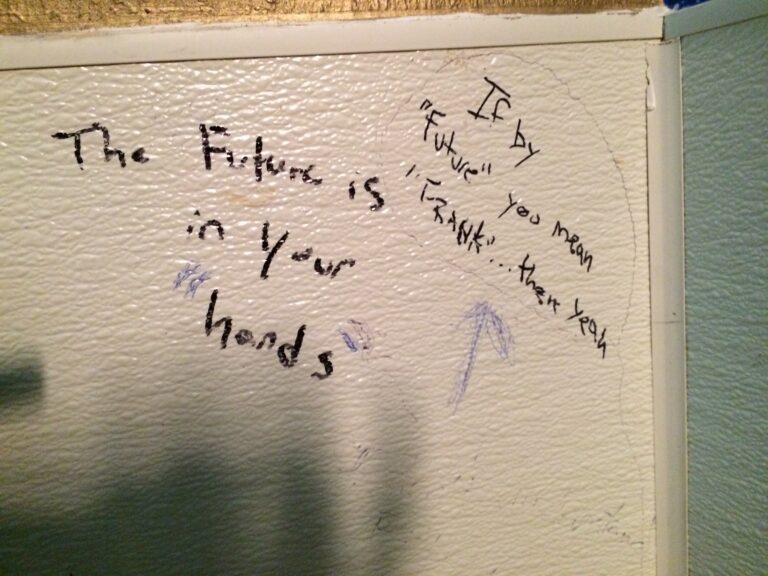 The Future is
in your
"hands"
If by
"Future" you mean
"FRANK"... then yeah